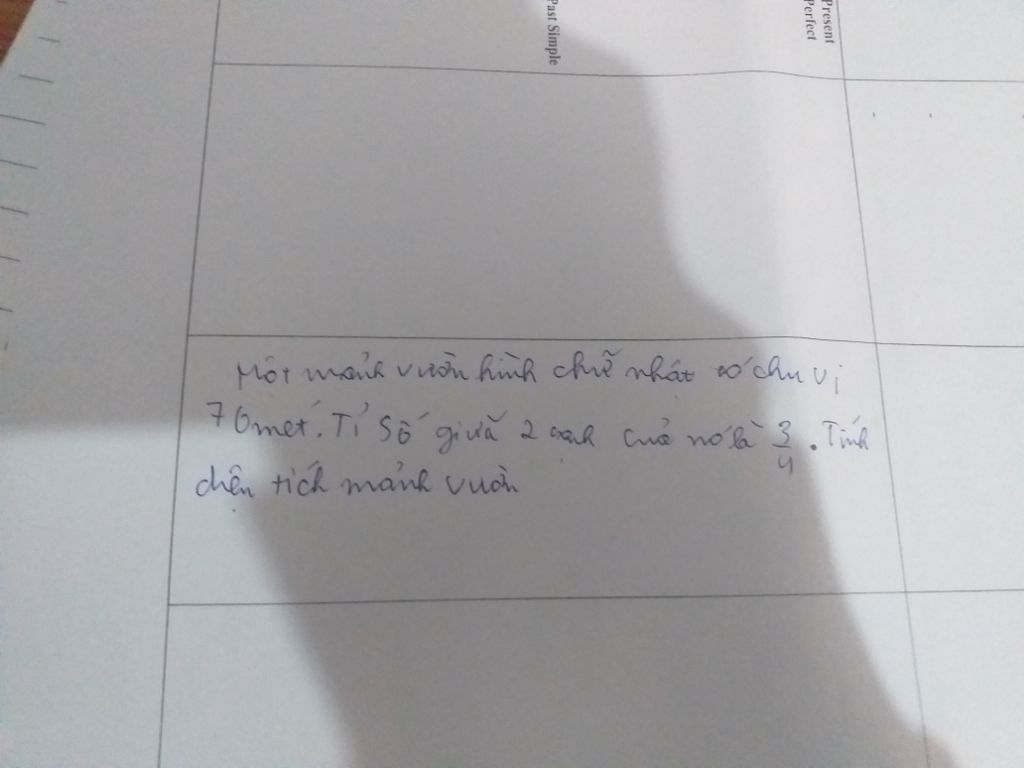 Past Simple
Present
Perfect
Một mảnh vườn hình chữ nhật có chu vi
70 mét. Tỉ số giữa 2 cạnh của nó là 3/4. Tính
diện tích mảnh vườn